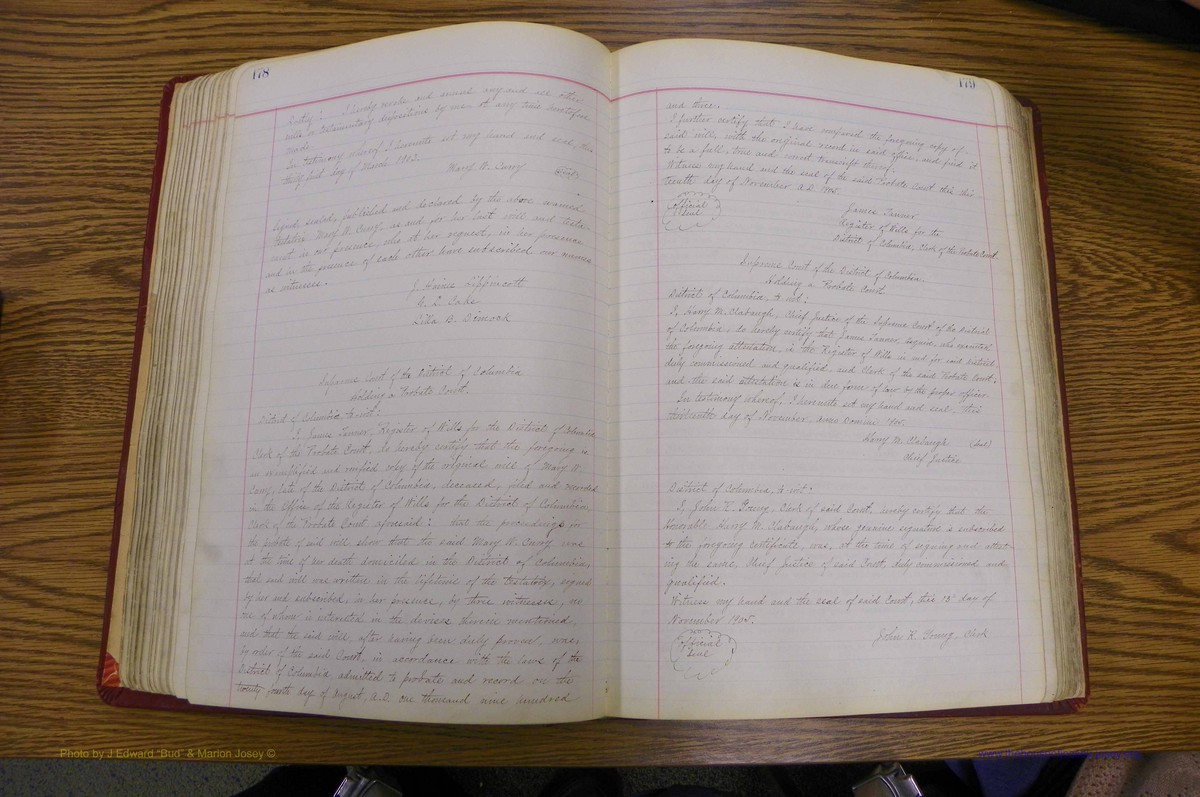 178
Lastly: I hereby revoke and annul any and all other
wills or testamentary dispositions by me at any time heretofore
made.
In testimony whereof I hereunto set my hand and seal, this
thirty first day of March 1903.
Mary W. Curry (Seal)
Signed, sealed, published and declared by the above named
testatrix, Mary W. Curry, as and for her last will and testa-
ment in our presence, who at her request, in her presence
and in the presence of each other have subscribed our names
as witnesses.
J. Haines Lippincott
Lilla B. Dimock
Supreme Court of the District of Columbia
Holding a Probate Court.
District of Columbia, to wit:
I, James Tanner, Register of Wills for the District of Columbia,
Clerk of the Probate Court, do hereby certify that the foregoing is
an exemplified and compared copy of the original will of Mary W.
Curry, late of the District of Columbia, deceased, filed and recorded
in the Office of the Register of Wills for the District of Columbia,
Clerk of the Probate Court aforesaid: that the proceedings for
the probate of said will show that the said Mary W. Curry was
at the time of her death domiciled in the District of Columbia,
that said will was written in the lifetime of the testatrix, signed
by her and subscribed, in her presence, by three witnesses, no
one of whom is interested in the devises therein mentioned,
and that the said will, after having been duly proven, was,
by order of the said Court, in accordance with the laws of the
District of Columbia admitted to probate and record on the
twenty fourth day of August, A.D. one thousand nine hundred
179
and three.
I further certify that I have compared the foregoing copy of
said will, with the original record in said office, and find it
to be a full, true and correct transcript thereof.
Witness my hand and the seal of the said Probate Court this thir-
teenth day of November A.D. 1905.
Official
Seal
James Tanner
Register of Wills for the
District of Columbia, Clerk of the Probate Court
Supreme Court of the District of Columbia.
Holding a Probate Court.
District of Columbia, to wit:
I, Harry M. Clabaugh, Chief Justice of the Supreme Court of the District
of Columbia, do hereby certify that James Tanner, Esquire, who executed
the foregoing attestation, is the Register of Wills in and for said District,
duly commissioned and qualified, and Clerk of the said Probate Court;
and the said attestation is in due form of law by the proper officer.
In testimony whereof, I hereunto set my hand and seal, this
thirteenth day of November, Anno Domini 1905.
Harry M. Clabaugh (Seal)
Chief Justice
District of Columbia, to wit:
I, John R. Young, Clerk of said Court, hereby certify that the
Honorable Harry M. Clabaugh, whose genuine signature is subscribed
to the foregoing certificate, was, at the time of signing and attest-
ing the same, Chief Justice of said Court, duly commissioned and
qualified.
Witness my hand and the seal of said Court, this 13" day of
November 1905.
Official
Seal
John R. Young, Clerk
Photo by J Edward "Bud" & Marlon Josey ©